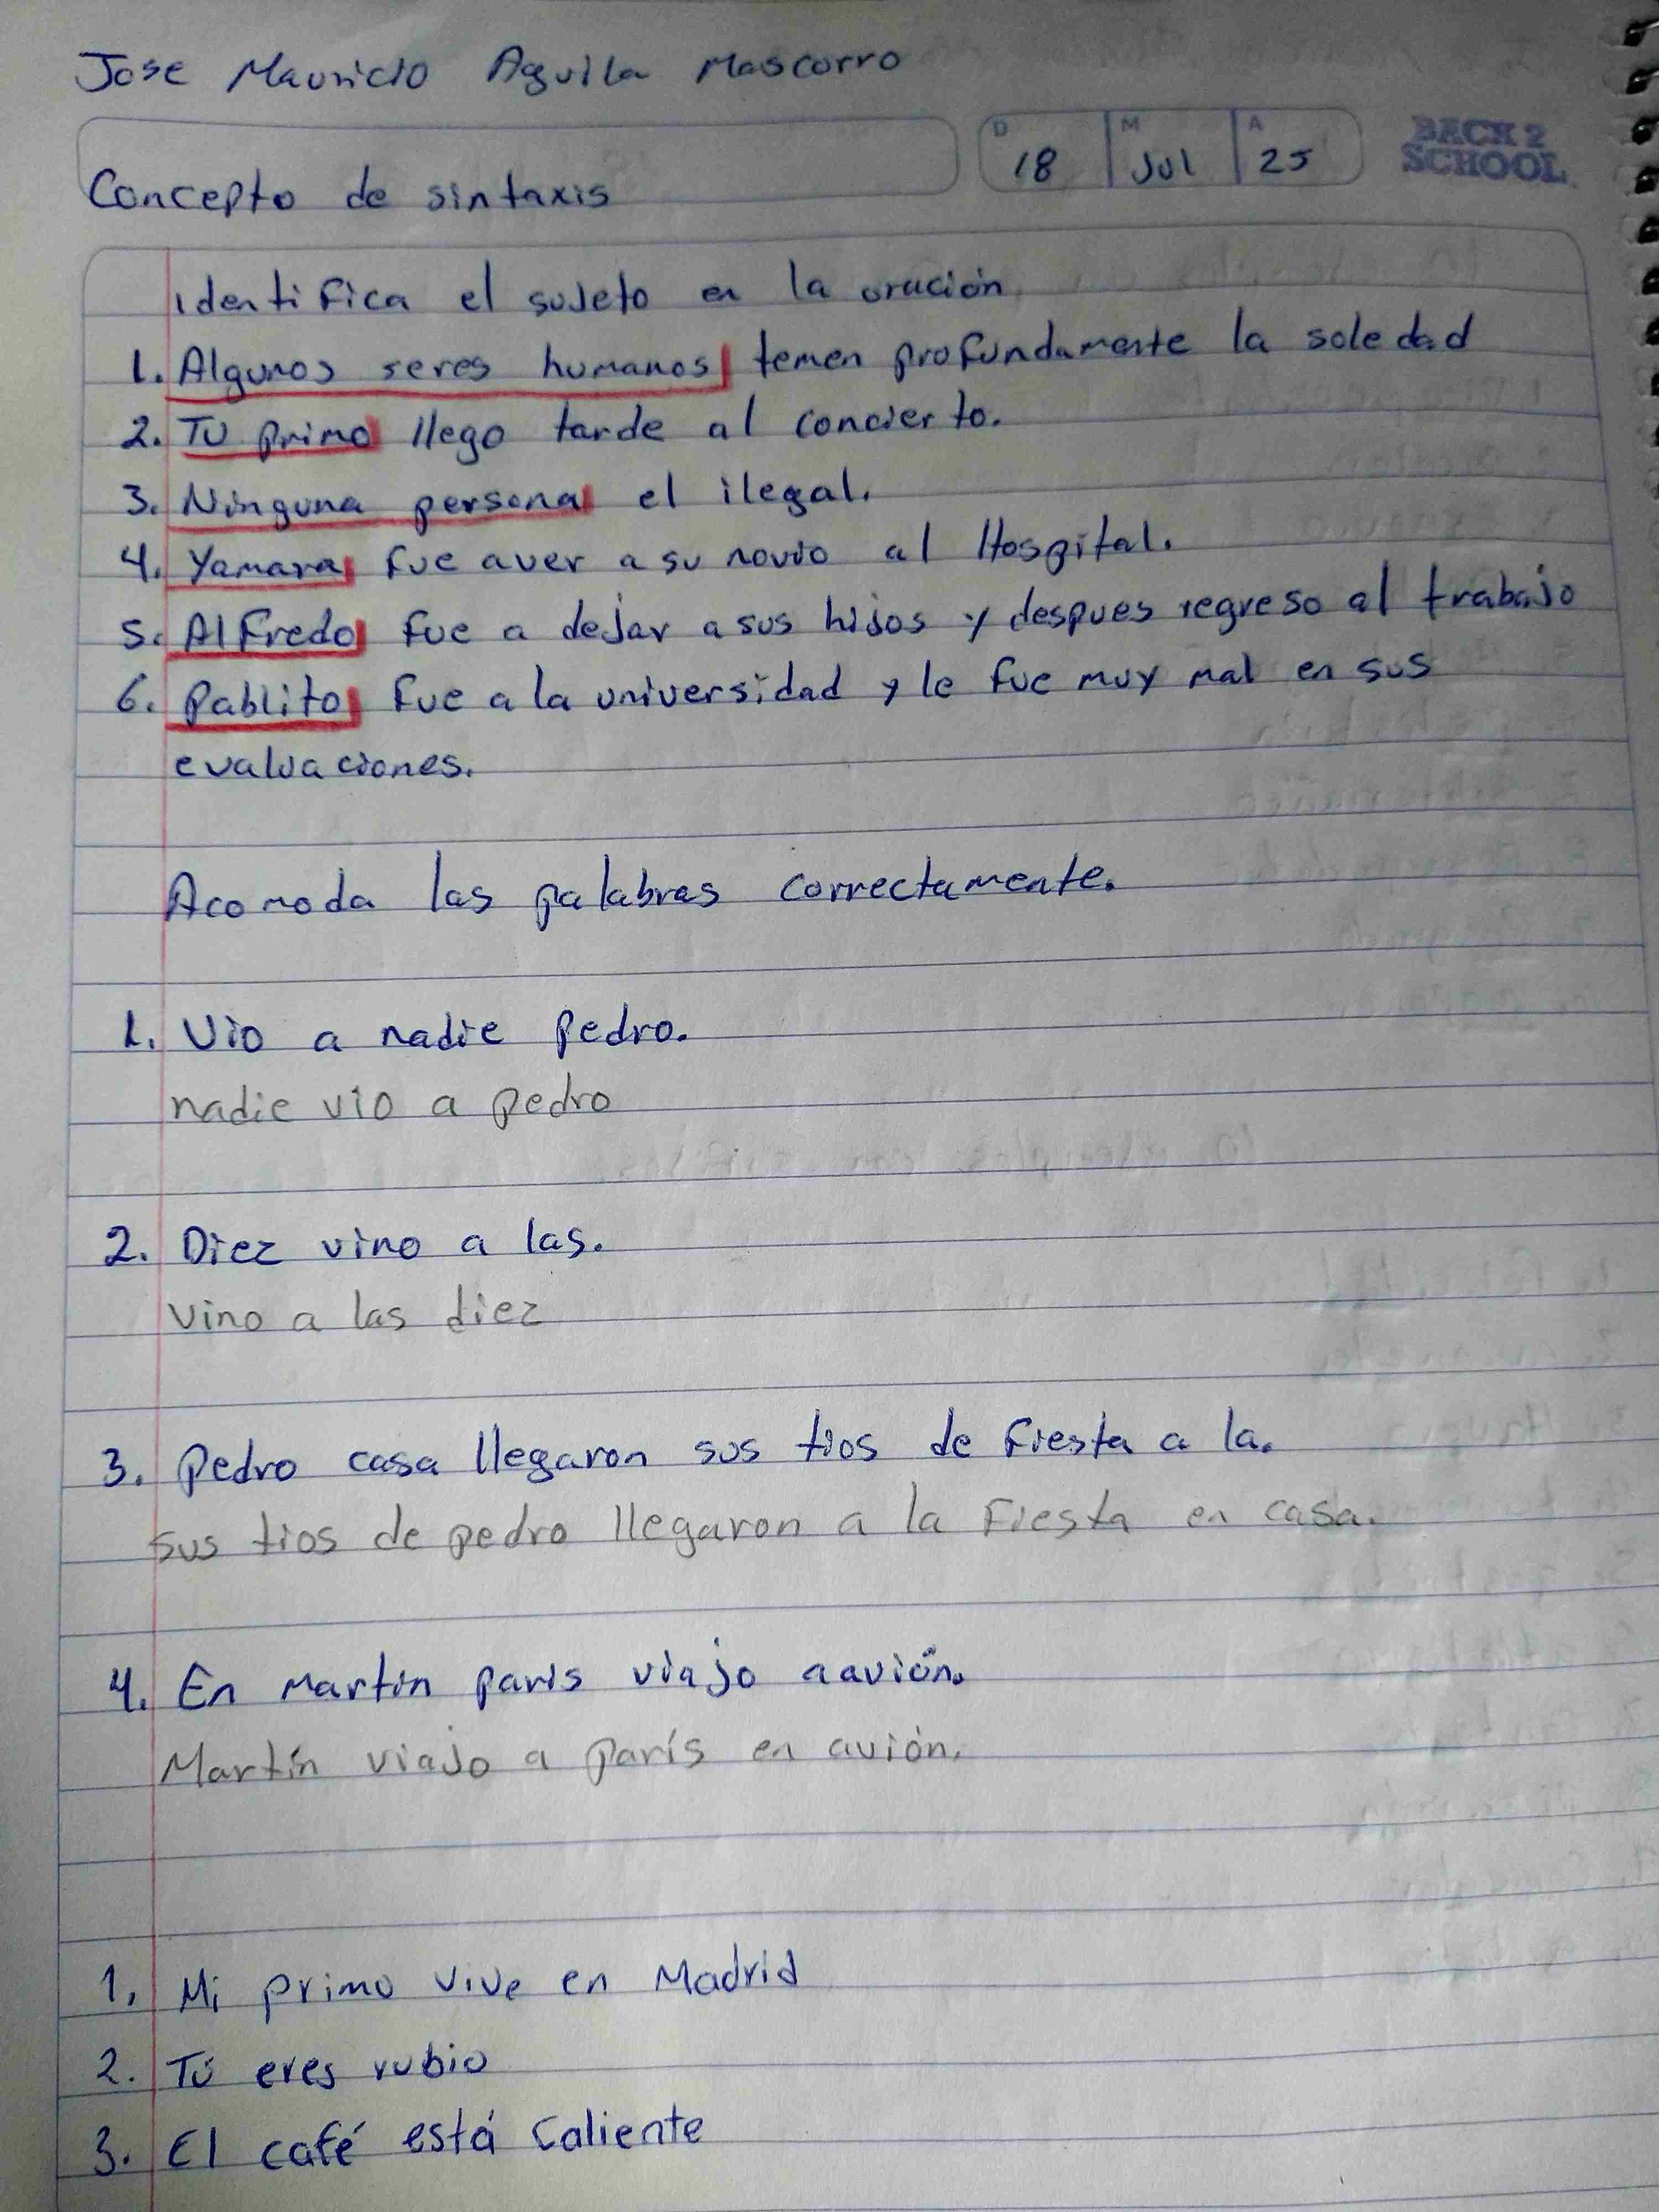 Jose Mauricio Aguila Mascorro
D 18 M Jul A 25
BACK 2
SCHOOL
Concepto de sintaxis
Identifica el sujeto en la oración
1. Algunos seres humanos temen profundamente la soledad
2. Tu primo llego tarde al concierto.
3. Ninguna persona el ilegal.
4. Yamara fue aver a su novio al Hospital.
5. Alfredo fue a dejar a sus hijos y despues regreso al trabajo
6. Pablito fue a la universidad y le fue muy mal en sus
evaluaciones.
Acomoda las palabras correctamente.
1. Vio a nadie Pedro.
nadie vio a pedro
2. Diez vino a las.
vino a las diez
3. Pedro casa llegaron sus tios de fiesta a la.
sus tios de pedro llegaron a la Fiesta en casa.
4. En Martin paris viajo a avión.
Martín viajo a parís en avión.
1. Mi primo vive en Madrid
2. Tú eres rubio
3. El café está caliente